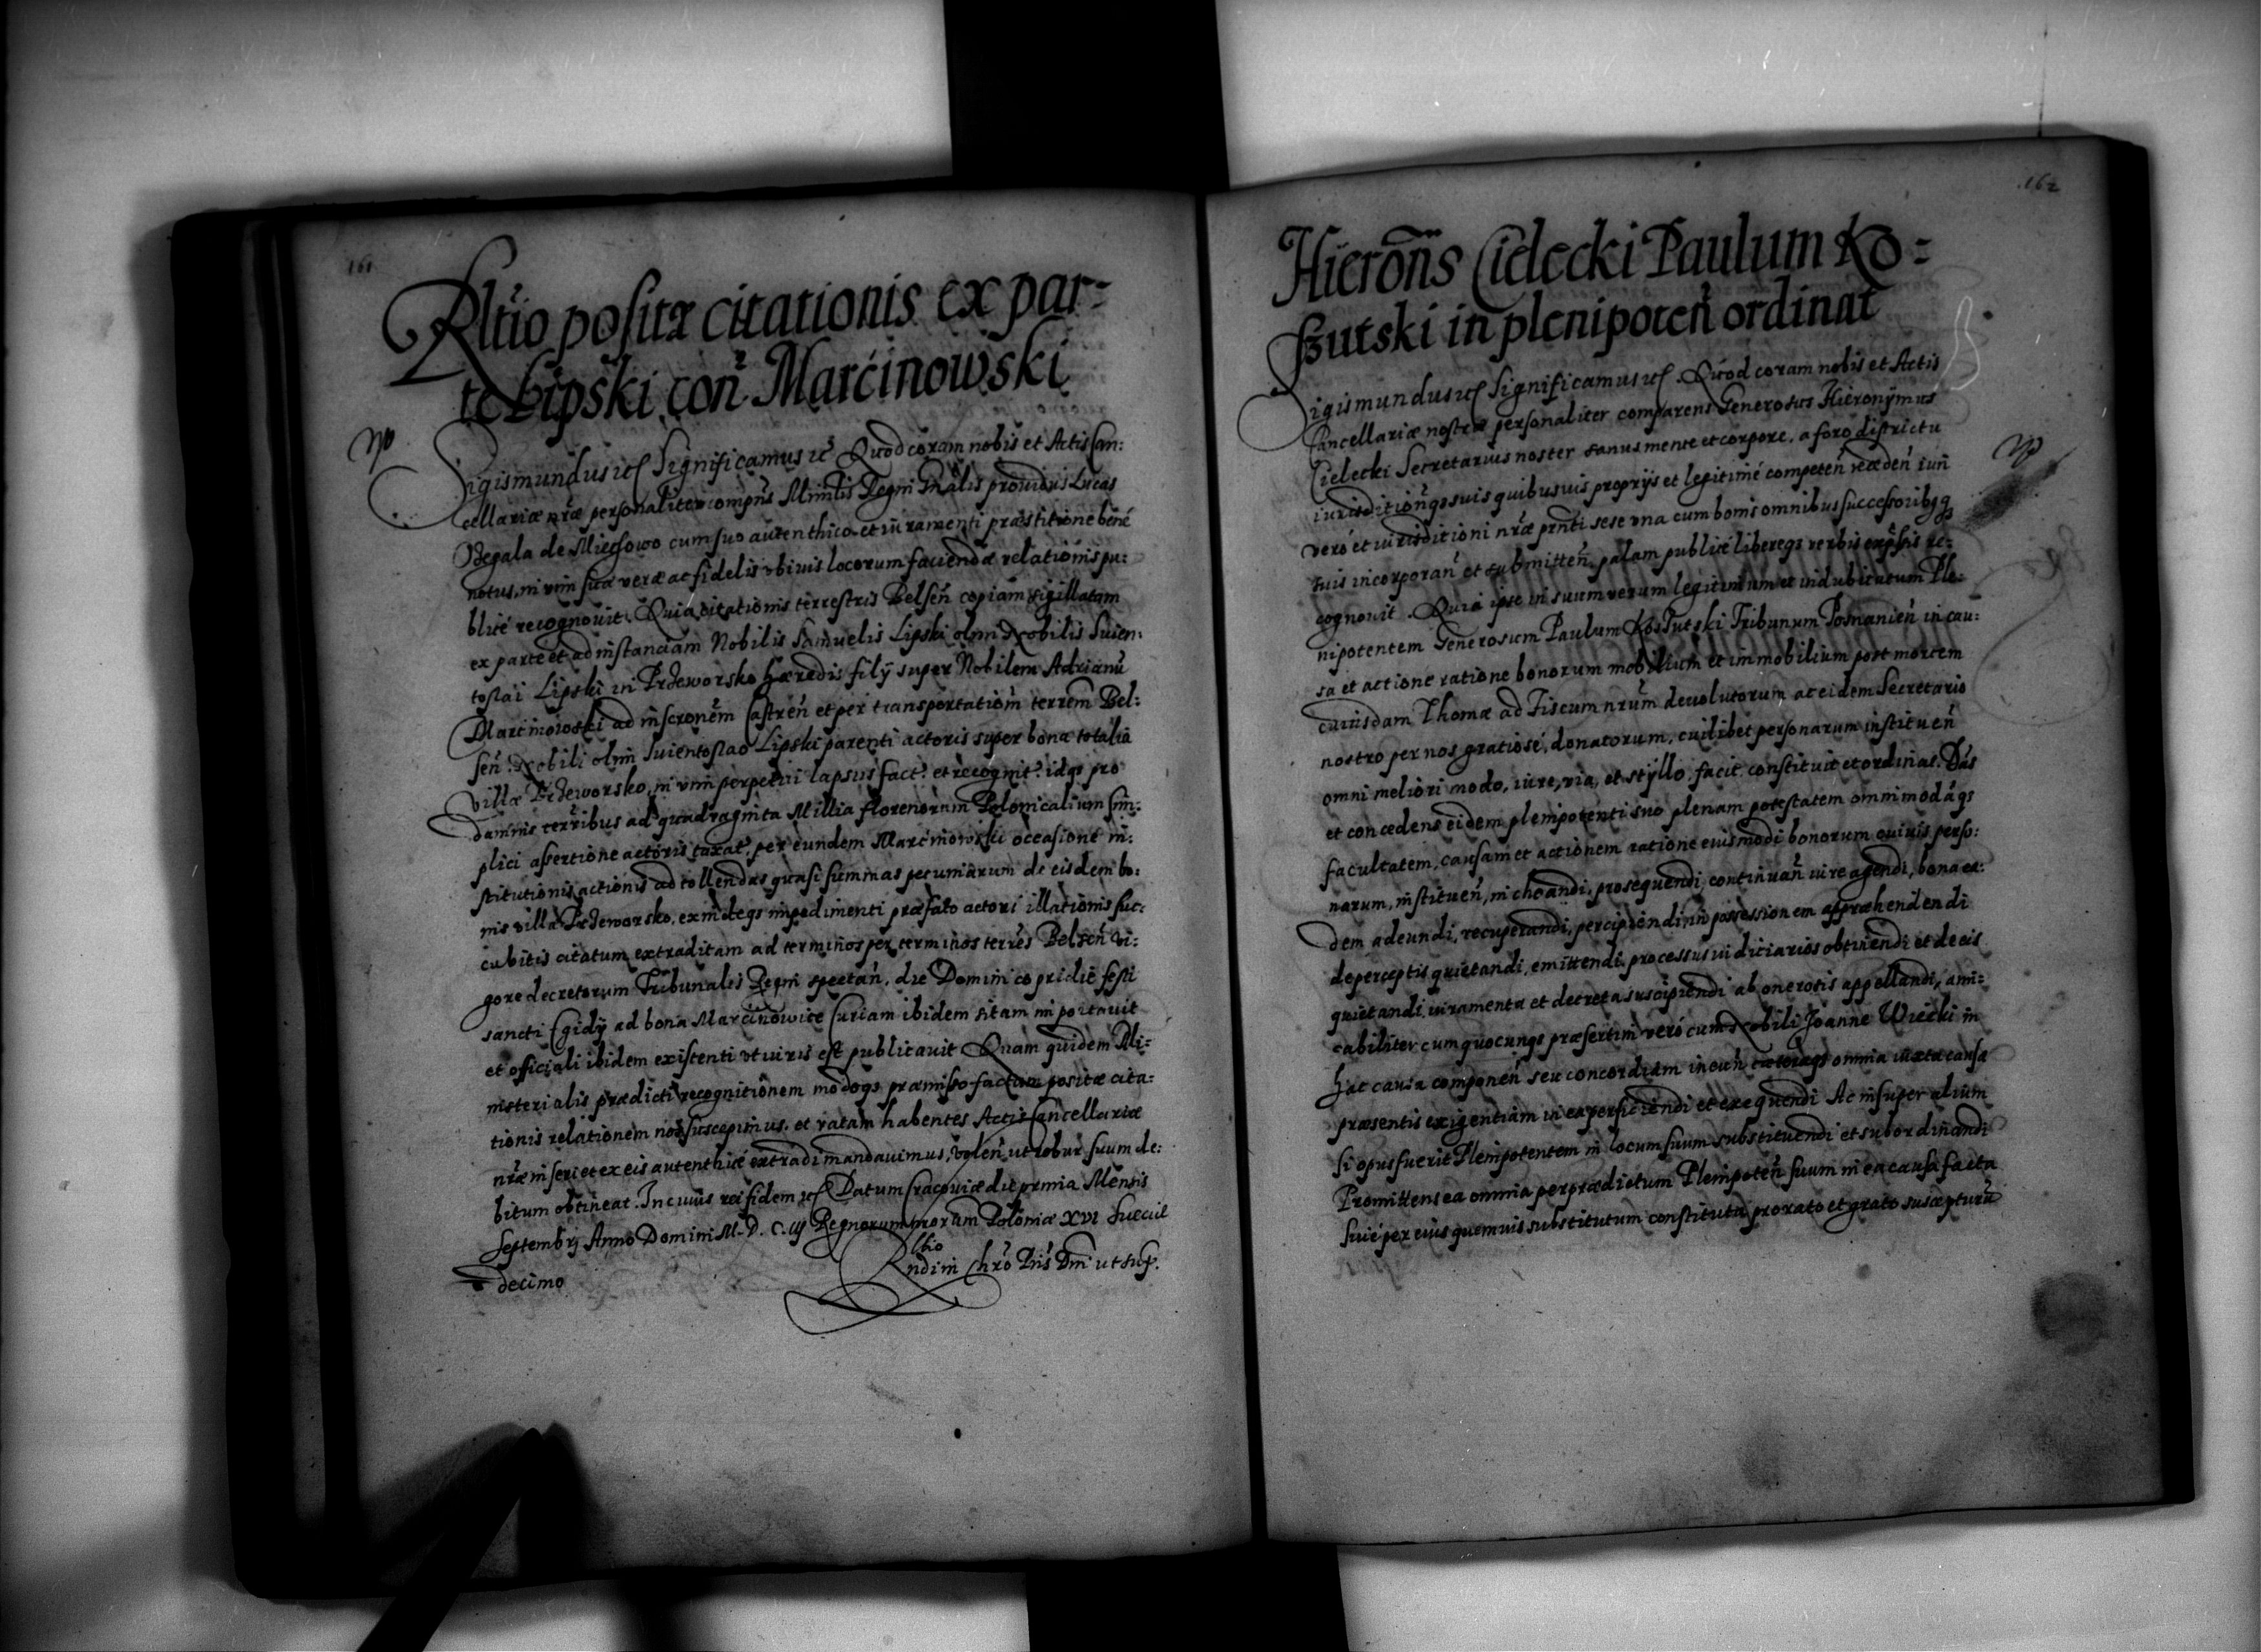 161
Rltio positæ citationis ex par-
te Lipski con Marcinowski
Sigismundus etc Significamus etc Quod coram nobis et Actis Can:
cellariæ nræ personaliter compns Mintis Regni Gnalis prouidus Lucas
de Miechowo cum suo authenthico et iuramenti præstitione bene
notus, in vim suæ veræ ac fidelis vbiuis locorum faciendæ relationis pu:
blice recognouit. Quia citationis terrestris Belsen copiam sigillatam
ex parte et ad instanciam Nobilis Samuelis Lipski olim Nobilis Suien:
toslai Lipski in Przeworsko hæredis filij super Nobilem Adrianu
Marcinowski ad inscronem Castren et per transportation terrem Bel:
sen Nobili olim Suientoslao Lipski parenti actoris super bona totalia
villæ Przeworsko, in vim perpetui lapsus fact. et recognit. idqs pro
damnis terribus ad quadraginta Millia florenorum Polonicalium sim:
plici assertione actoris taxat. per eundem Marcinowski occasione in:
stitutionis actionis ad tollendas quasi summas pecuniarum de eisdem bo:
nis villa Przeworsko, exindeqs impedimenti præfato actori illationis suc:
cubitis citatum extraditam ad terminos per terminos terres Belsen vi:
gore decretorum Tribunalis Regni spectan, die Dominico pridie festi
sancti Egidij ad bona Marcinowice Curiam ibidem sitam importauit
et officiali ibidem existenti vt viris est publicauit Quam quidem Mi:
nisterialis prædicti recognitionem modoqs præmisso factam positæ cita:
tionis relationem nos suscepimus. et ratam habentes Actis Cancellariæ
nræ inseri et ex eis autenthice extradi mandauimus, volen ut robur suum de:
bitum obtineat. In cuius rei fidem etc Datum Cracouiæ die prima Mensis
Septembrj Anno Domini M. D. C. iij Regnorum nrorum Poloniæ XVI Sueciæ
decimo
Rltio
Rndi in Chro Pris Dni ut sup.
162
Hierons Cielecki Paulum Ko-
szutski in plenipoten ordinat
Sigismundus etc Significamus etc. Quod coram nobis et Actis
Cancellariæ nostræ personaliter comparens Generosus Hieronymus
Cielecki Secretarius noster sanus mente et corpore, a foro districtu
iurisditionqs suis quibusuis proprijs et legitime competen receden iun
vero et iurisditioni nræ prnti sese vna cum bonis omnibus successoribqs
suis incorporan et submitten. palam publice libereqs verbis exprssis re:
cognouit. Quia ipse in suum verum legitimum et indubitatum Ple:
nipotentem Generosum Paulum Koszutski Tribunum Posnanien in cau:
sa et actione ratione bonorum mobilium et immobilium post mortem
cuiusdam Thomæ ad Fiscum nrum deuolutorum ac eidem Secretario
nostro per nos gratiose, donatorum, cuilibet personarum instituen
omni meliori modo, iure, via, et styllo, facit constituit et ordinat. Dás
et concedens eidem plenipotenti suo plenam potestatem omnimodaqs
facultatem, causam et actionem ratione eiusmodi bonorum cuiuis perso:
narum, instituen, inchoandi, prosequendi, continuan iure agendi, bona ea:
dem adeundi, recuperandi, percipiendi, in possessionem apprehendendi
de perceptis quietandi, emittendi, processus iudiciarios obtinendi et de eis
quietandi, iuramenta et decreta suscipiendi ab onerosis appellandi, ami:
cabiliter cum quocunqs præsertim vero cum Nobili Joanne Wiecki in
hac causa componen seu concordiam ineun cæteraqs omnia iuxta causæ
præsentis exigentiam in ea perficiendi et exequendi Ac insuper alium
si opus fuerit Plenipotentem in locum suum substituendi et subordinandi
Promittens ea omnia per prædictum Plenipoten suum in ea causa facta
siue per eius quemuis substitutum constituta pro rato et grato suscepturu